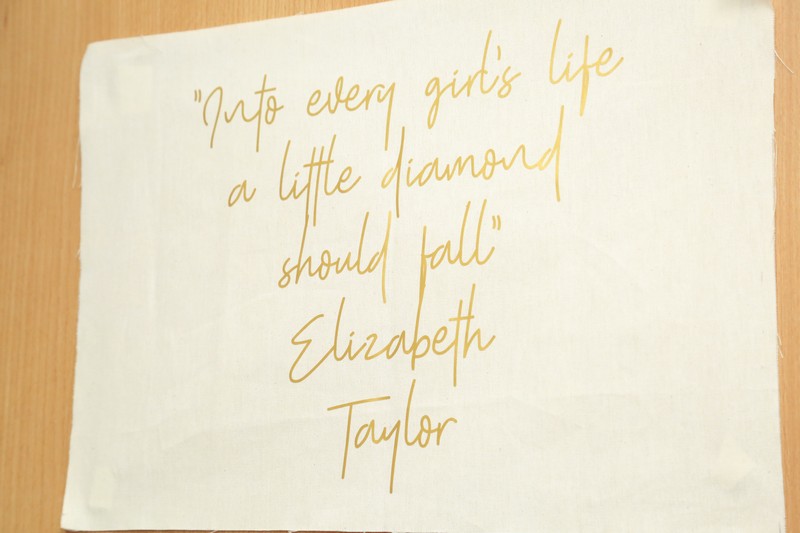 "Into every girl's life
a little diamond
should fall"
Elizabeth
Taylor